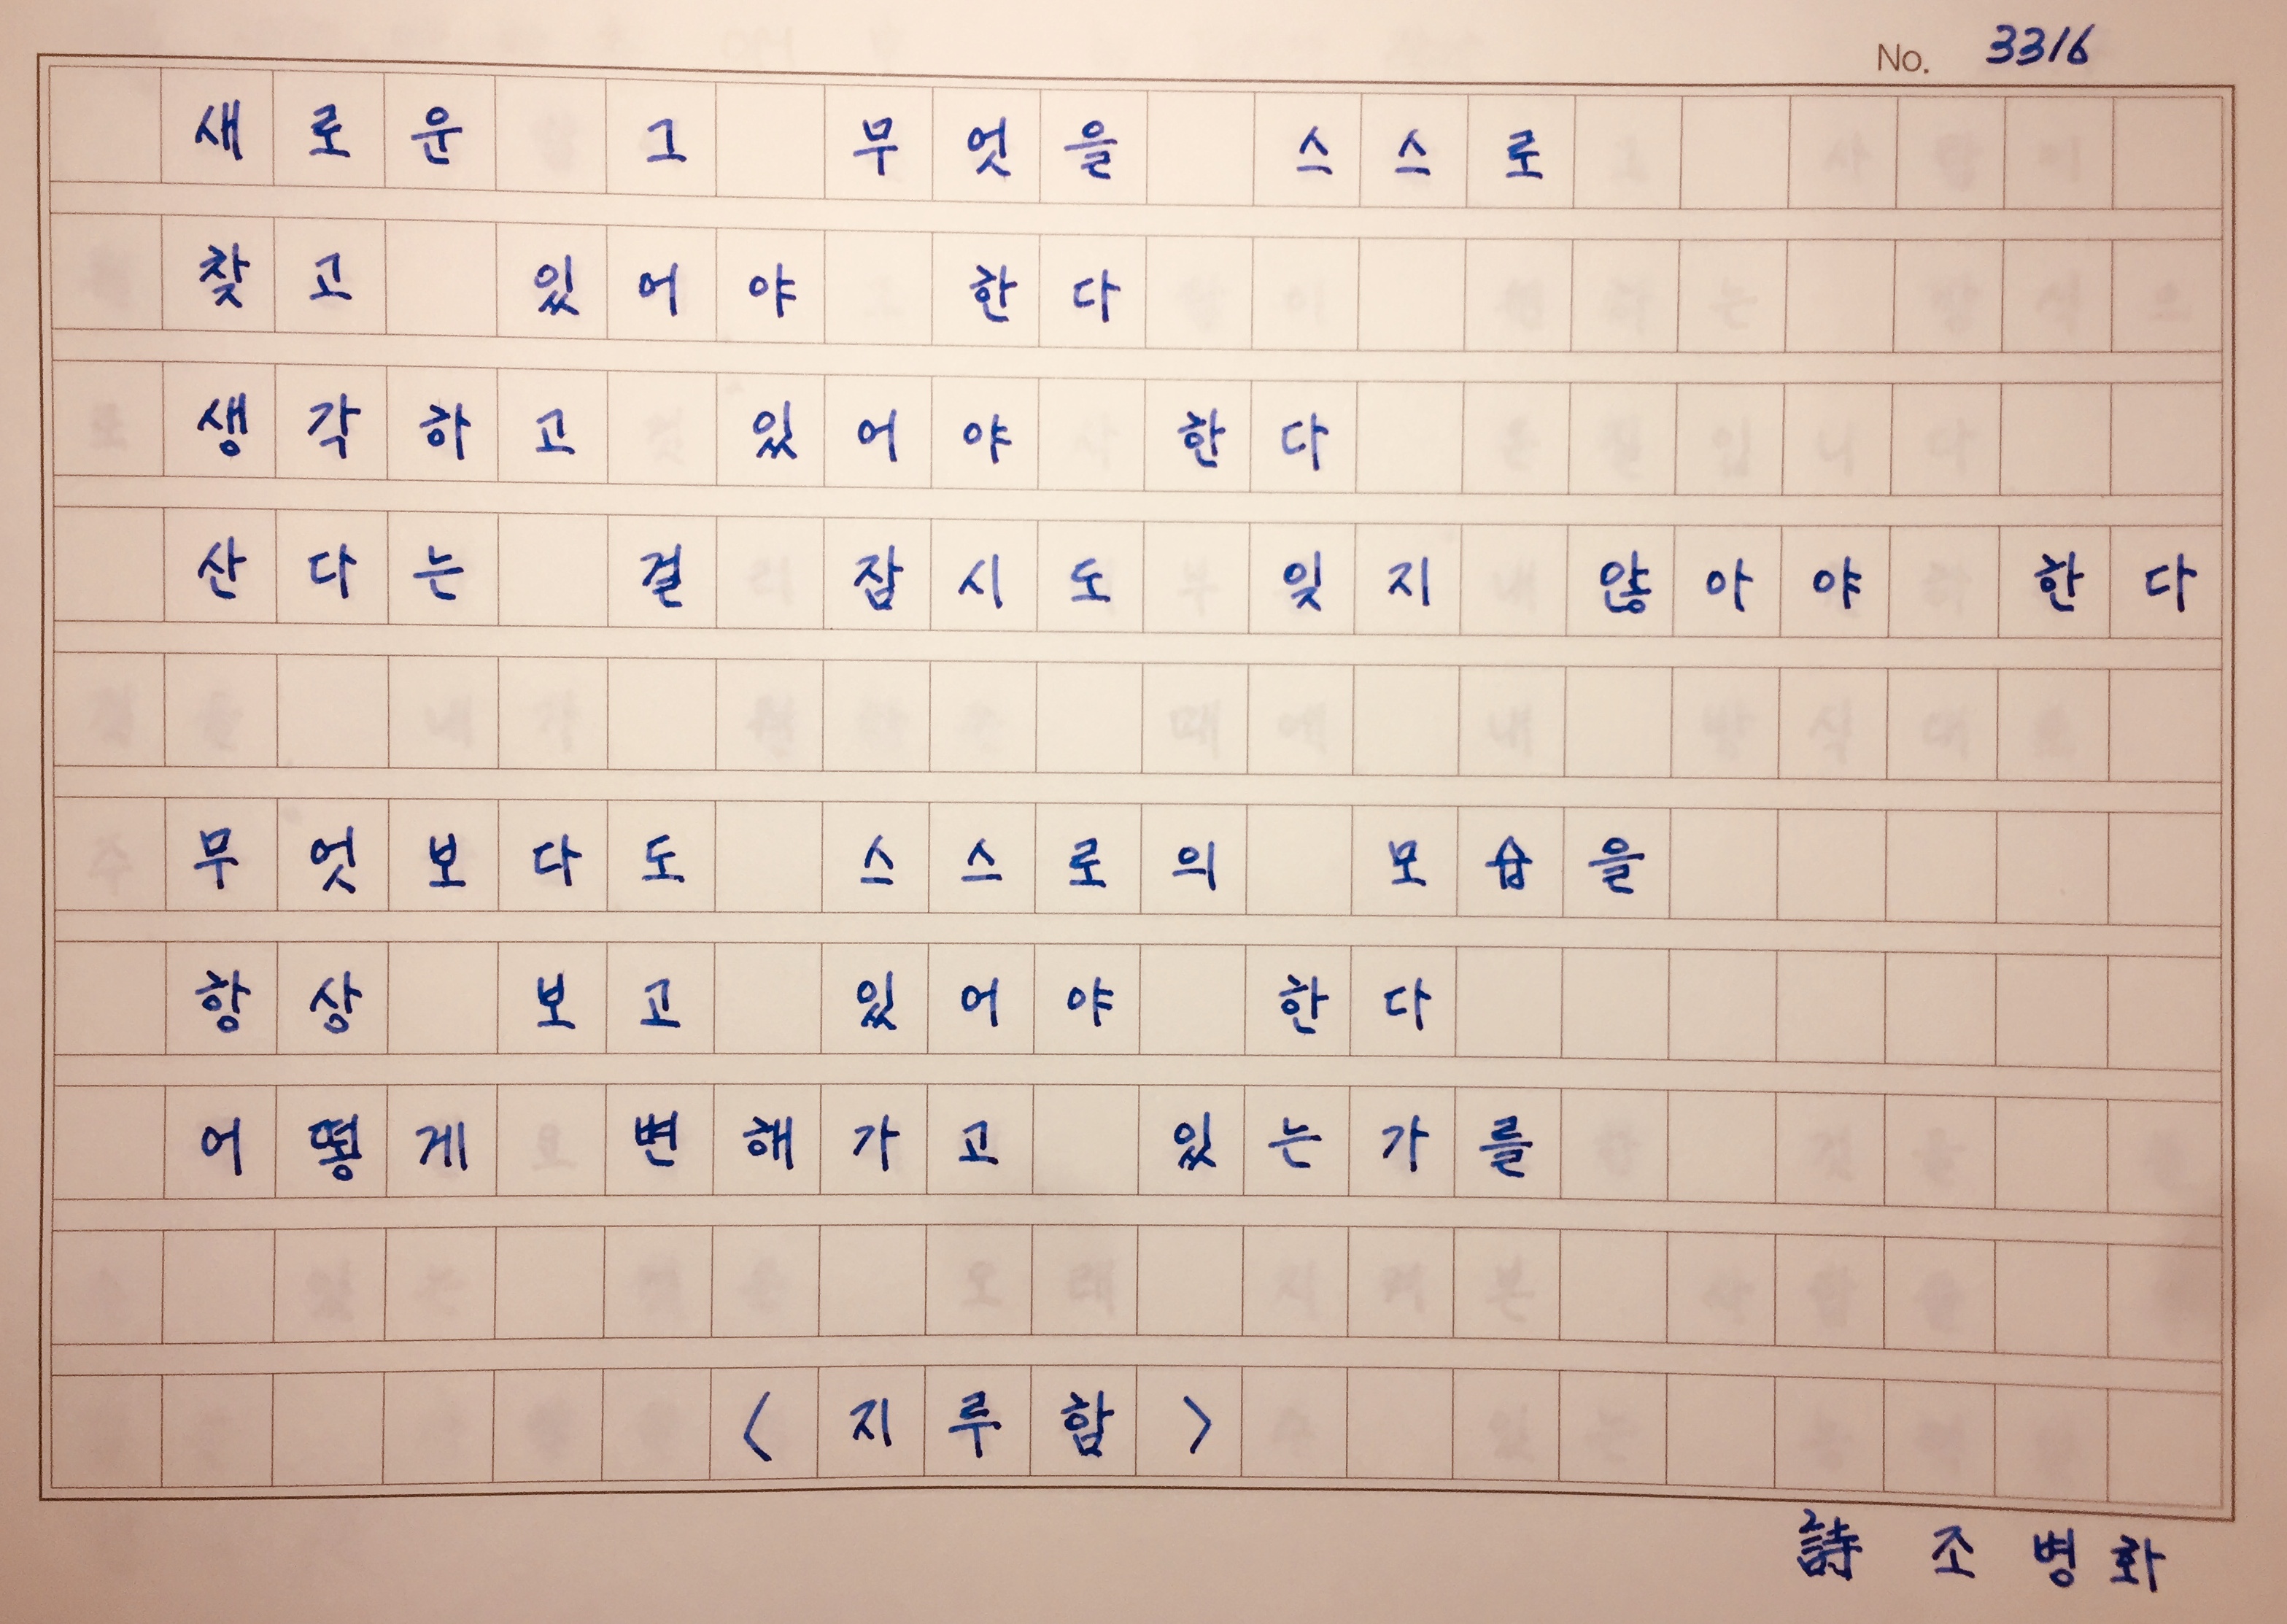 No. 3316
새로운 그 무엇을 스스로
찾고 있어야 한다
생각하고 있어야 한다
산다는 걸 잠시도 잊지 않아야 한다
무엇보다도 스스로의 모습을
항상 보고 있어야 한다
어떻게 변해가고 있는가를
<지루함>
詩 조병화